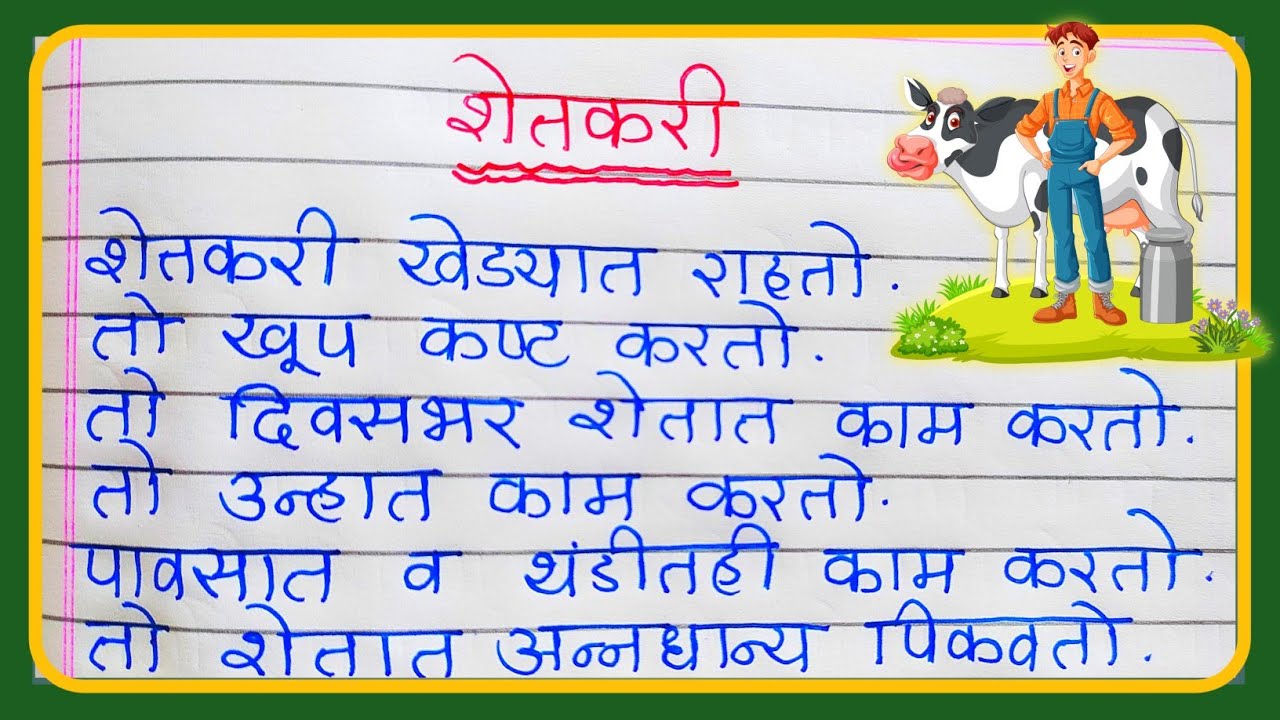 शेतकरी
शेतकरी खेड्यात राहतो.
तो खूप कष्ट करतो.
तो दिवसभर शेतात काम करतो.
तो उन्हात काम करतो.
पावसात व थंडीतही काम करतो.
तो शेतात अन्नधान्य पिकवतो.